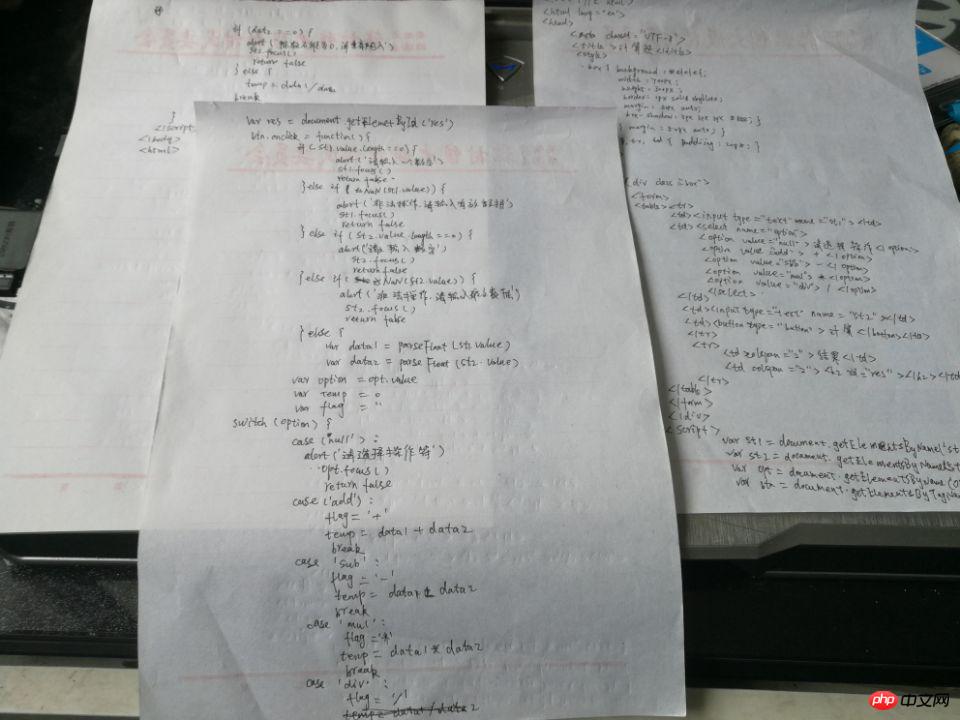 if (data2 == = 0) {
alert ('除数不能为0, 请重新输入')
st2.focus()
return false
} else {
temp = data1/data2
break
}
</script>
</body>
<html>
var res = document.getElemetById('res')
btn.onclick = function() {
if (st1.value.length == 0) {
alert('请输入一个数字')
st1.focus()
return false
} else if (isNaN(st1.value)) {
alert('非法操作,请输入有效数据')
st1.focus()
return false
} else if (st2.value.length == = 0) {
alert('请输入数字')
st2.focus()
return false
} else if (isNaN(st2.value)) {
alert('非法操作,请输入有效数据')
st2.focus()
return false
} else {
var data1 = parseFloat(st1.value)
var data2 = parseFloat(st2.value)
var option = opt.value
var temp = 0
var flag = ''
switch (option) {
case ('null') :
alert('请选择操作符')
opt.focus()
return false
case('add') :
flag = '+'
temp = data1 + data2
break
case 'sub' :
flag = '-'
temp = data1 - data2
break
case 'mul' :
flag = '*'
temp = data1 * data2
break
case 'div' :
flag = '/'
temp = data1/data2
<html lang="en">
<html>
<meta charset="UTF-8">
<title>计算器</title>
<style>
.box { background:
width:
height: 300px;
border: 1px solid skyblue;
margin: auto;
box-shadow: 888; }
margin: auto; }
td { padding: }
<div class="box">
<form>
<table><tr>
<td><input type="text" name="st1"></td>
<td><select name="option">
<option value="null">请选择操作</option>
<option value="add"> + </option>
<option value="sub"> - </option>
<option value="mul"> * </option>
<option value="div"> / </option>
</select>
</td>
<td><input type="text" name="st2"></td>
<td><button type="button">计算</button></td>
</tr>
<tr>
<td colspan="2">结果</td>
<td colspan="2"><h2 id="res"></h2></td>
</tr>
</table>
</form>
</div>
<script>
var st1 = document.getElementsByName('st
var st2 = document.getElementsByName('st
var opt = document.getElementsByName('O
var btn = document.getElementsByTagName
php 中文网